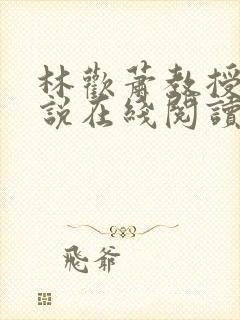 林歡蕭教授
說在綫閱讀
飛爺